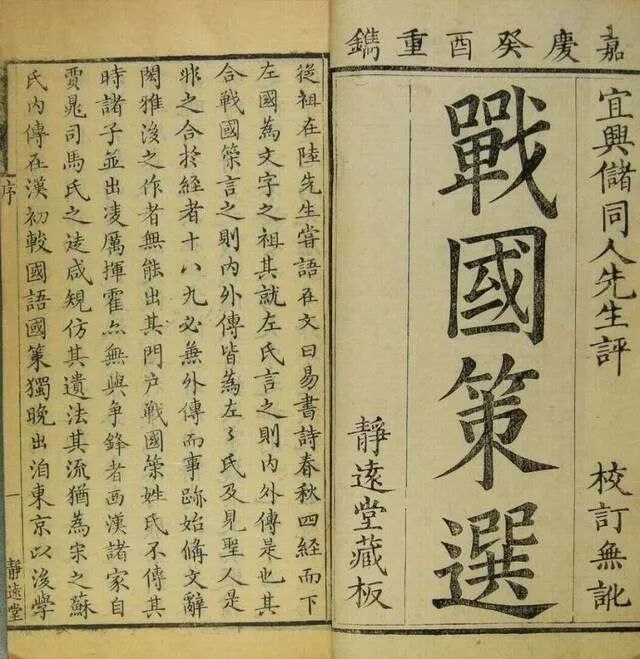 嘉慶癸酉重鐫
宜興儲同人先生評
校訂無訛
戰國策選
靜遠堂藏板
從祖在陸先生嘗語在文曰易書詩春秋四經而下
左國為文字之祖其就左氏言之則內外傳是也其
合戰國策言之則內外傳皆為左々氏及見聖人是
非之合於經者十八九必無外傳而事跡始備文辭
閎雅浚之作者無能出其門户戰國策姓氏不傳其
時諸子並出凌厲揮霍亦無與爭鋒者西漢諸家自
賈晁司馬氏之徒咸規仿其遺法其流猶為宋之蘇
氏內傳在漢初較國語國策獨晚出洎東京以後學
序
一
靜遠堂